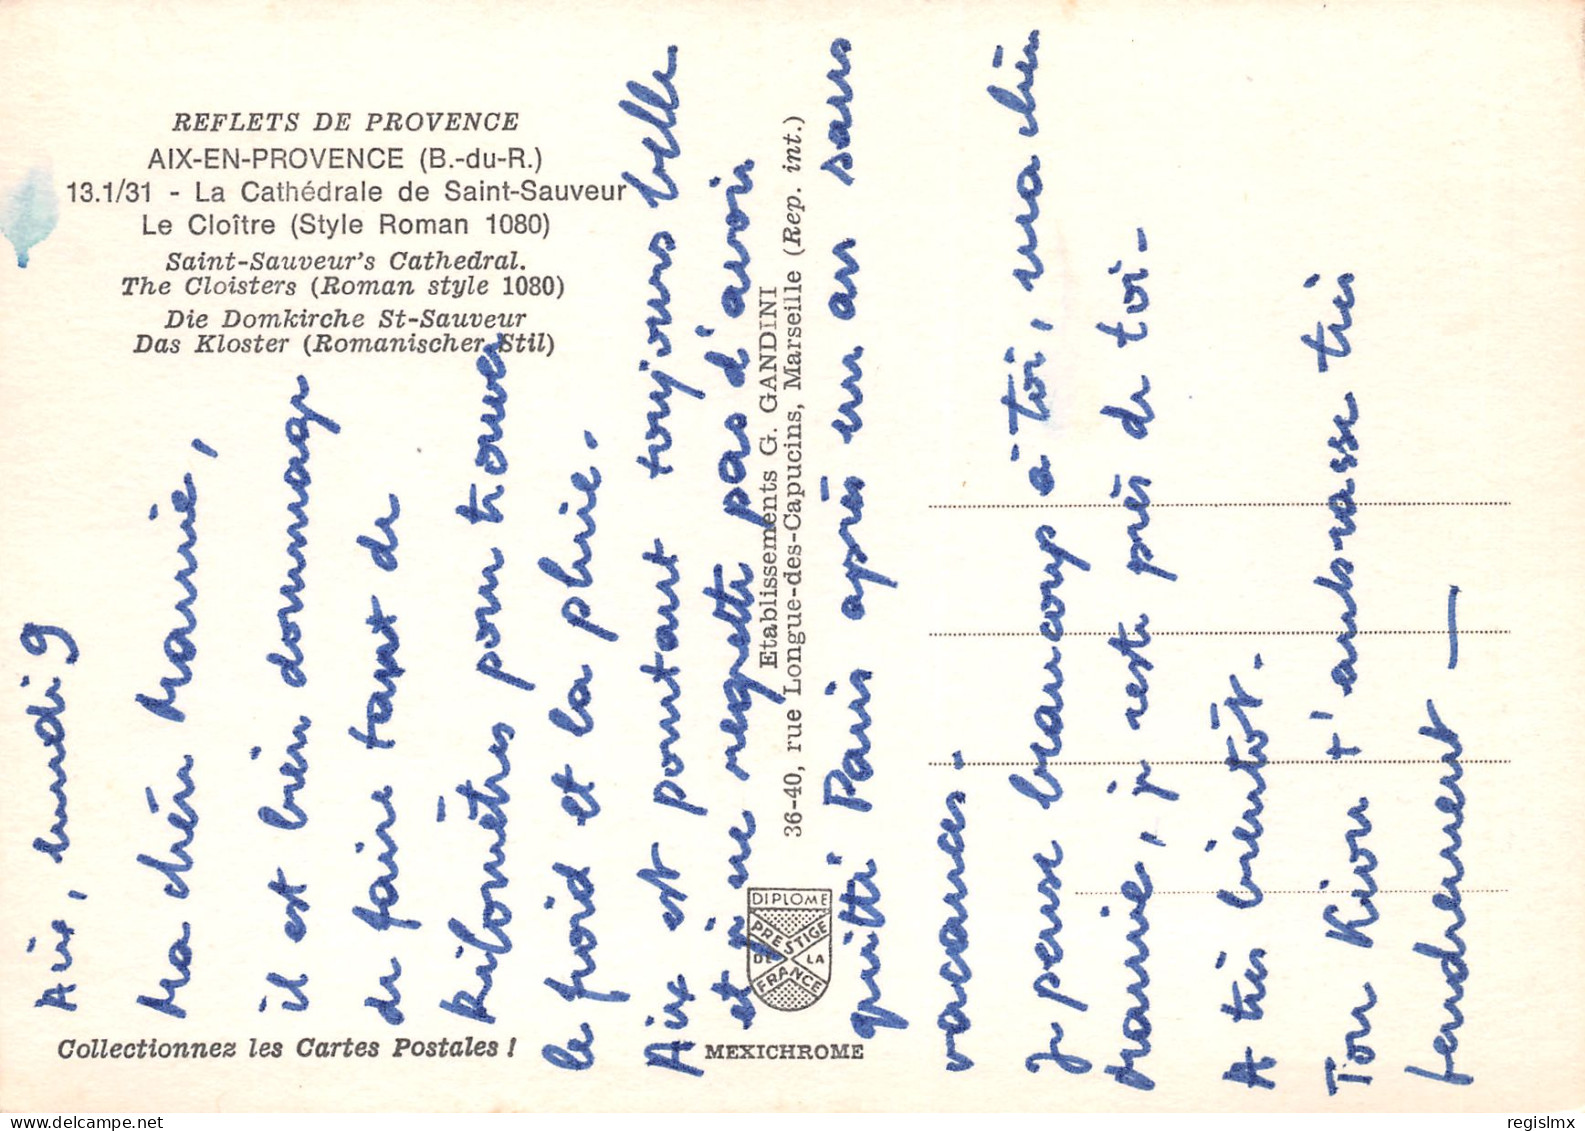 REFLETS DE PROVENCE
AIX-EN-PROVENCE (B.-du-R.)
13.1/31 - La Cathédrale de Saint-Sauveur
Le Cloître (Style Roman 1080)
Saint-Sauveur's Cathedral.
The Cloisters (Roman style 1080)
Die Domkirche St-Sauveur
Das Kloster (Romanischer Stil)
Aix, lundi 9
Ma chère Mannie,
il est bien dommage
de faire tant de
kilomètres pour trouver
le froid et la pluie.
Aix est pourtant toujours belle
et je ne regrette pas d'avoir
quitté Paris après un an sans
vacances.
Je pense beaucoup à toi, ma chère
Mannie, je reste près de toi-
A très bientôt.
Ton t'embrasse très
tendrement —
Etablissements G. GANDINI
36-40, rue Longue-des-Capucins, Marseille (Rep. int.)
DIPLOME
PRESTIGE
DE LA
FRANCE
Collectionnez les Cartes Postales !
MEXICHROME
regislmx